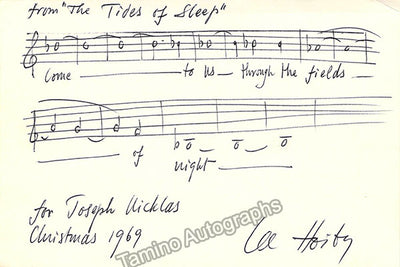 from "The Tides of Sleep"
Come — to us — through the fields —
— of night —
for Joseph Nicklas
Christmas 1969
Lee Hoiby
Tamino Autographs